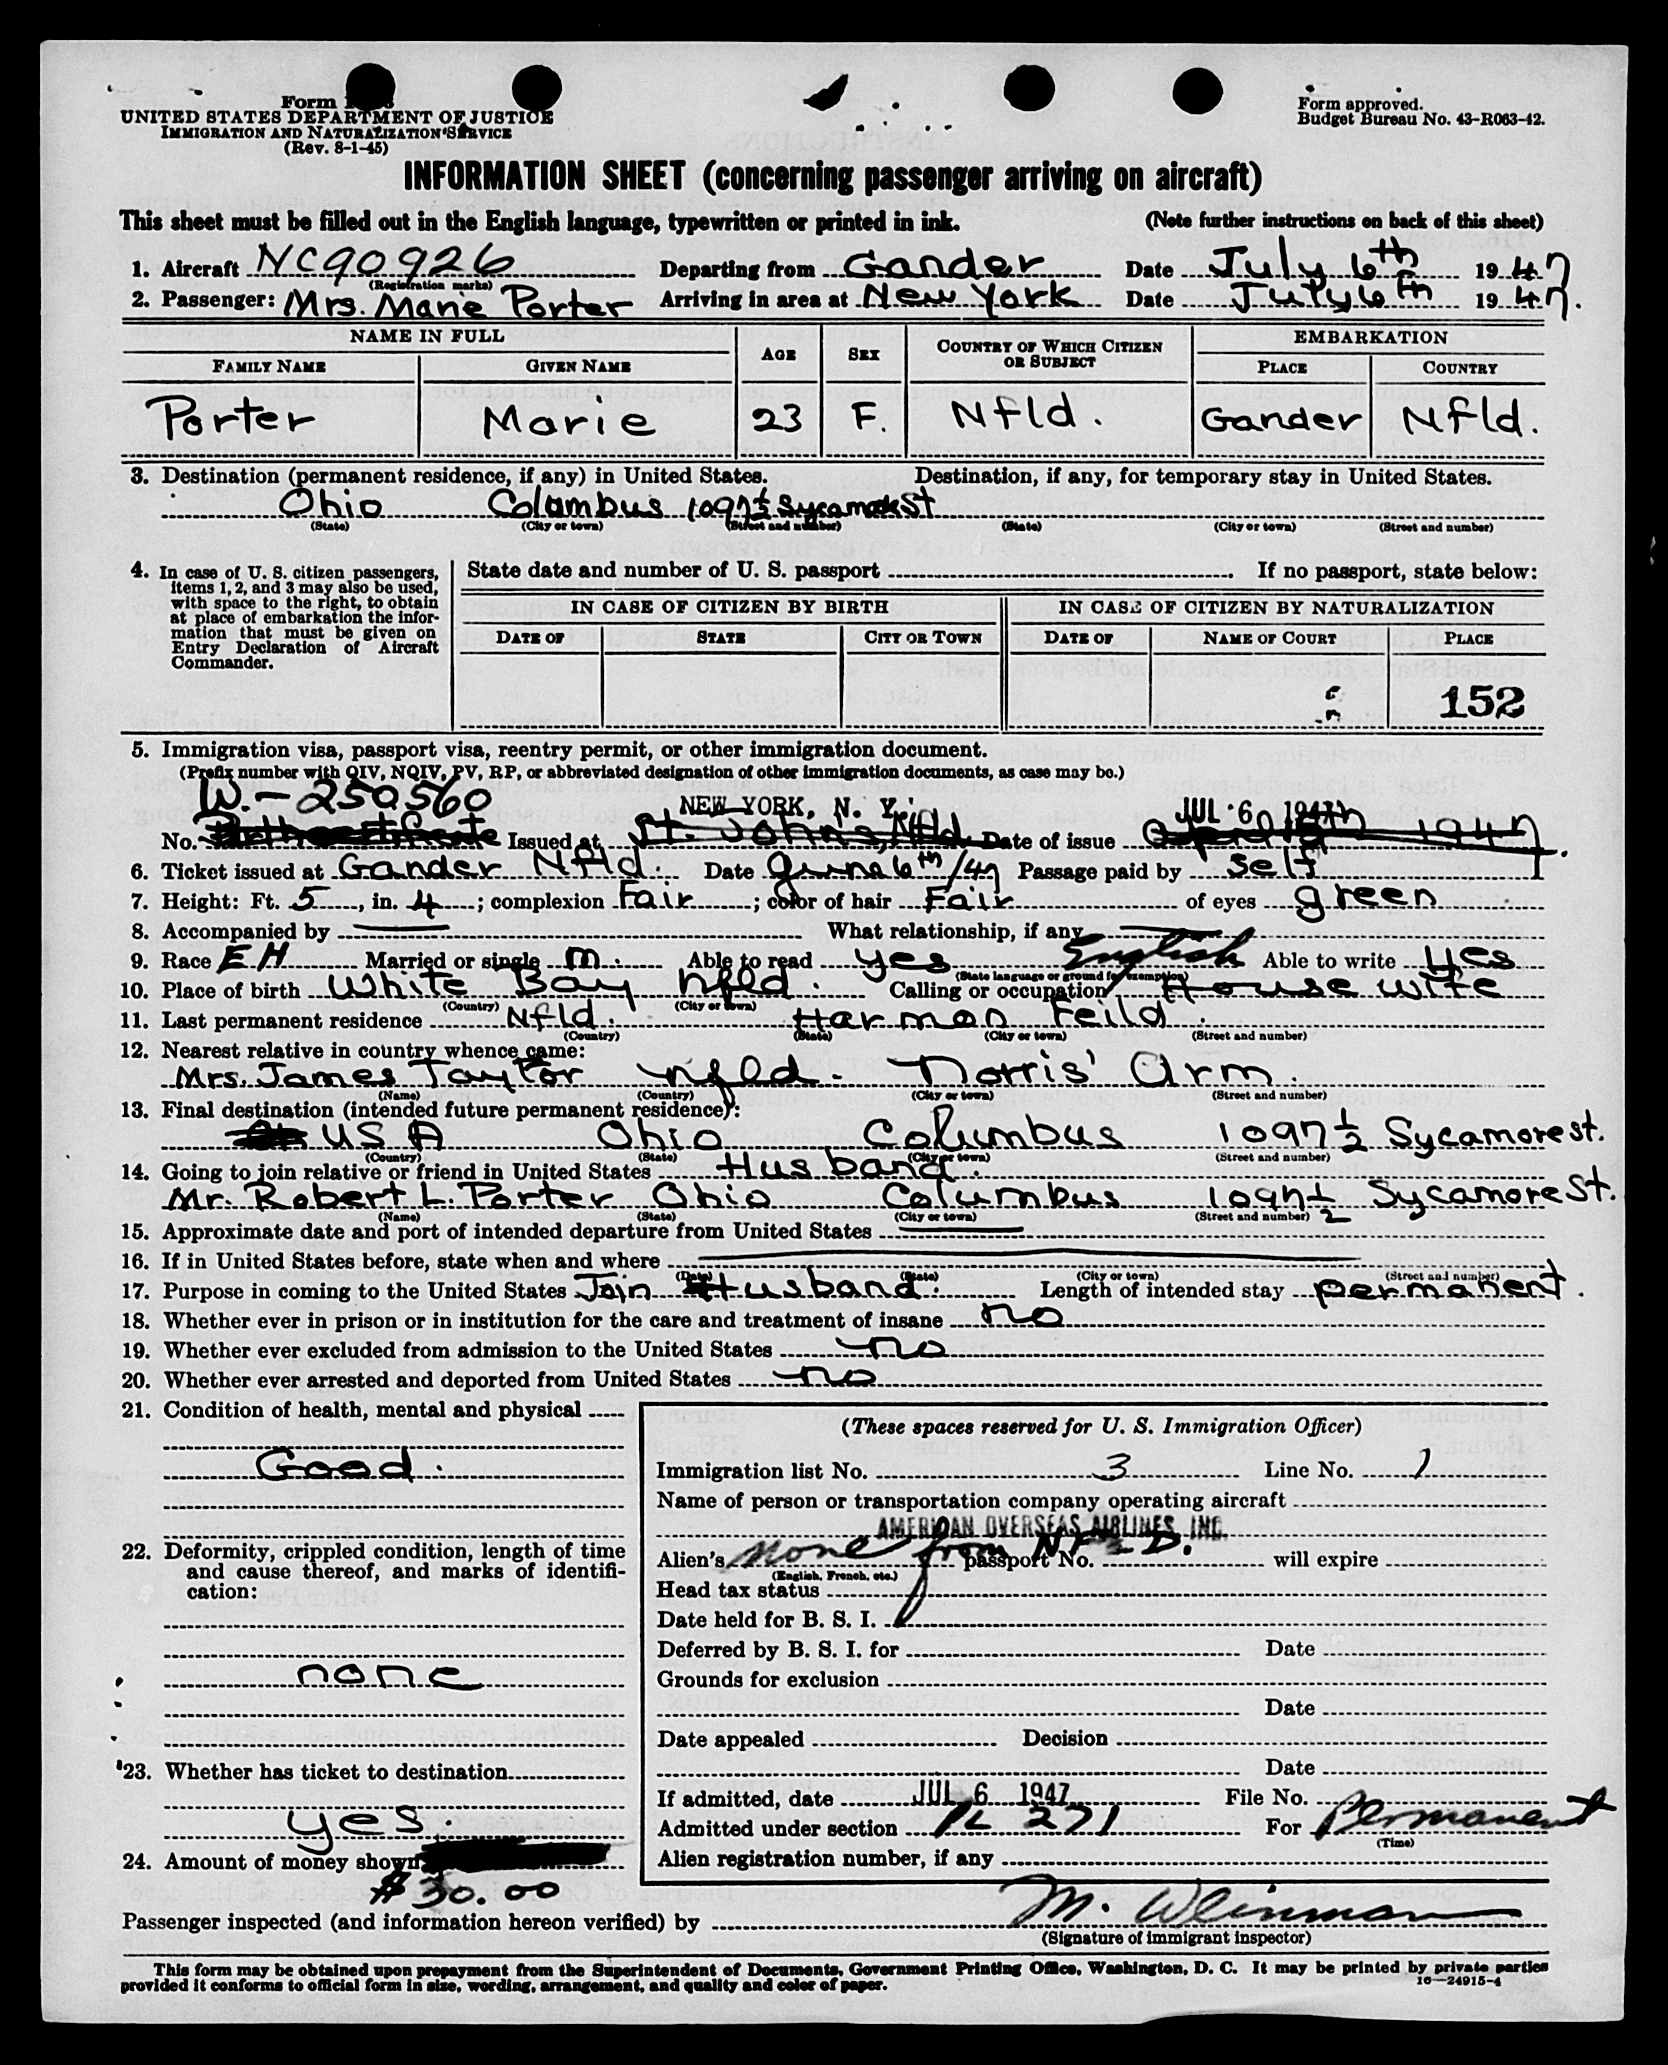 Form
UNITED STATES DEPARTMENT OF JUSTICE
IMMIGRATION AND NATURALIZATION SERVICE
(Rev. 8-1-45)
Form approved.
Budget Bureau No. 43-R063-42.
INFORMATION SHEET (concerning passenger arriving on aircraft)
This sheet must be filled out in the English language, typewritten or printed in ink. (Note further instructions on back of this sheet)
1. Aircraft NC90926 Departing from Gander Date July 6th 1947
(Registration marks)
2. Passenger: Mrs. Marie Porter Arriving in area at New York Date July 6th 1947.
NAME IN FULL AGE SEX COUNTRY OF WHICH CITIZEN OR SUBJECT EMBARKATION
FAMILY NAME GIVEN NAME PLACE COUNTRY
Porter Marie 23 F. Nfld. Gander Nfld.
3. Destination (permanent residence, if any) in United States. Destination, if any, for temporary stay in United States.
Ohio Colambus 1097½ Sycamore St
(State) (City or town) (Street and number) (State) (City or town) (Street and number)
4. In case of U. S. citizen passengers, items 1, 2, and 3 may also be used, with space to the right, to obtain at place of embarkation the information that must be given on Entry Declaration of Aircraft Commander.
State date and number of U. S. passport . If no passport, state below:
IN CASE OF CITIZEN BY BIRTH IN CASE OF CITIZEN BY NATURALIZATION
DATE OF STATE CITY OR TOWN DATE OF NAME OF COURT PLACE
152
5. Immigration visa, passport visa, reentry permit, or other immigration document.
(Prefix number with QIV, NQIV, PV, RP, or abbreviated designation of other immigration documents, as case may be.)
W.-250560 NEW YORK, N. Y. JUL 6 1947
No. Issued at St. John's, Nfld. Date of issue 1947.
6. Ticket issued at Gander Nfld. Date June 6th/47 Passage paid by self
7. Height: Ft. 5, in. 4; complexion Fair; color of hair Fair of eyes green
8. Accompanied by What relationship, if any
9. Race EH Married or single m. Able to read yes English Able to write yes
(State language or ground for exemption)
10. Place of birth White Bay nfld. Calling or occupation House wife
(Country) (City or town)
11. Last permanent residence Nfld. Harmon Feild.
(Country) (State) (City or town) (Street and number)
12. Nearest relative in country whence came:
Mrs. James Taylor nfld. Norris' Arm.
(Name) (Country) (City or town) (Street and number)
13. Final destination (intended future permanent residence):
USA Ohio Columbus 1097½ Sycamore st.
(Country) (State) (City or town) (Street and number)
14. Going to join relative or friend in United States Husband.
Mr. Robert L. Porter Ohio Columbus 1097½ Sycamore St.
(Name) (State) (City or town) (Street and number)
15. Approximate date and port of intended departure from United States
16. If in United States before, state when and where
(Date) (State) (City or town) (Street and number)
17. Purpose in coming to the United States Join Husband. Length of intended stay permanent.
18. Whether ever in prison or in institution for the care and treatment of insane no
19. Whether ever excluded from admission to the United States no
20. Whether ever arrested and deported from United States no
21. Condition of health, mental and physical
Good.
22. Deformity, crippled condition, length of time and cause thereof, and marks of identification:
none
23. Whether has ticket to destination
yes.
24. Amount of money shown
$30.00
(These spaces reserved for U. S. Immigration Officer)
Immigration list No. 3 Line No. 1
Name of person or transportation company operating aircraft
AMERICAN OVERSEAS AIRLINES, INC.
Alien's none from NF-D. passport No. will expire
(English, French, etc.)
Head tax status
Date held for B. S. I.
Deferred by B. S. I. for Date
Grounds for exclusion
Date
Date appealed Decision
Date
If admitted, date JUL 6 1947 File No.
Admitted under section PL 271 For Permanent
(Time)
Alien registration number, if any
Passenger inspected (and information hereon verified) by M. Weinman
(Signature of immigrant inspector)
This form may be obtained upon prepayment from the Superintendent of Documents, Government Printing Office, Washington, D. C. It may be printed by private parties
provided it conforms to official form in size, wording, arrangement, and quality and color of paper.
16—24915-4